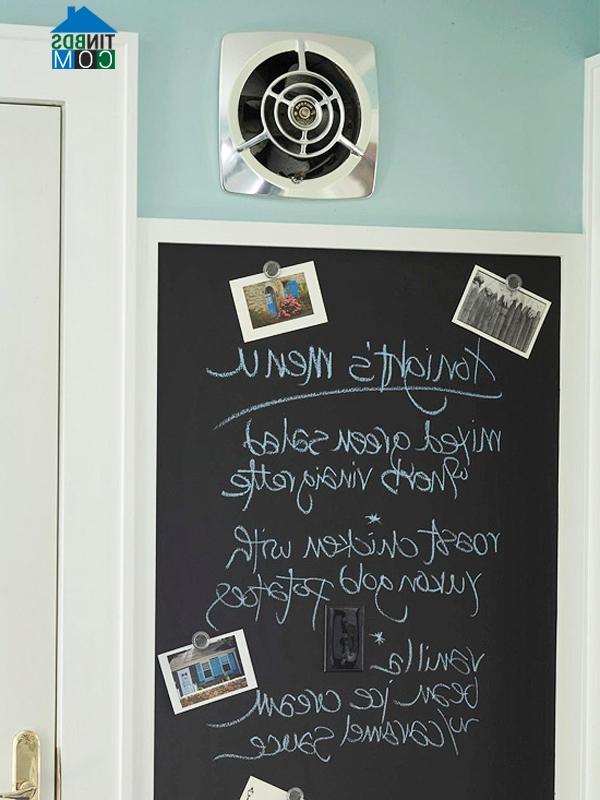 TINBDS
COM
tonight's menu
mixed green salad
w/herb vinaigrette
*
roast chicken with
yukon gold potatoes
*
vanilla
bean ice cream
w/caramel sauce